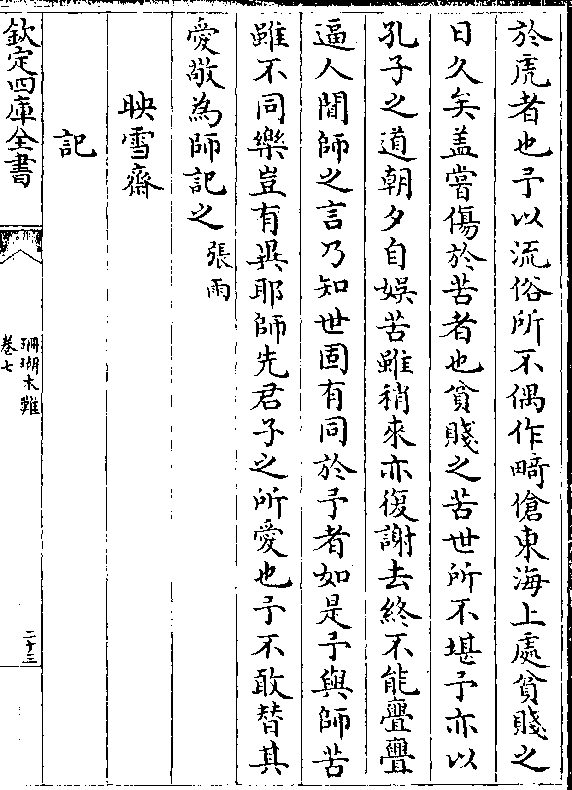 於虎者也予以流俗所不偶作畸傖東海上處貧賤之
日久矣盖嘗傷於苦者也貧賤之苦世所不堪予亦以
孔子之道朝夕自娛苦雖稍來亦復謝去終不能亹亹
逼人聞師之言乃知世固有同於予者如是予與師苦
雖不同樂豈有異耶師先君子之所愛也予不敢替其
愛敬為師記之 張雨
映雪齋
記
欽定四庫全書
珊瑚木難
卷七
二十三